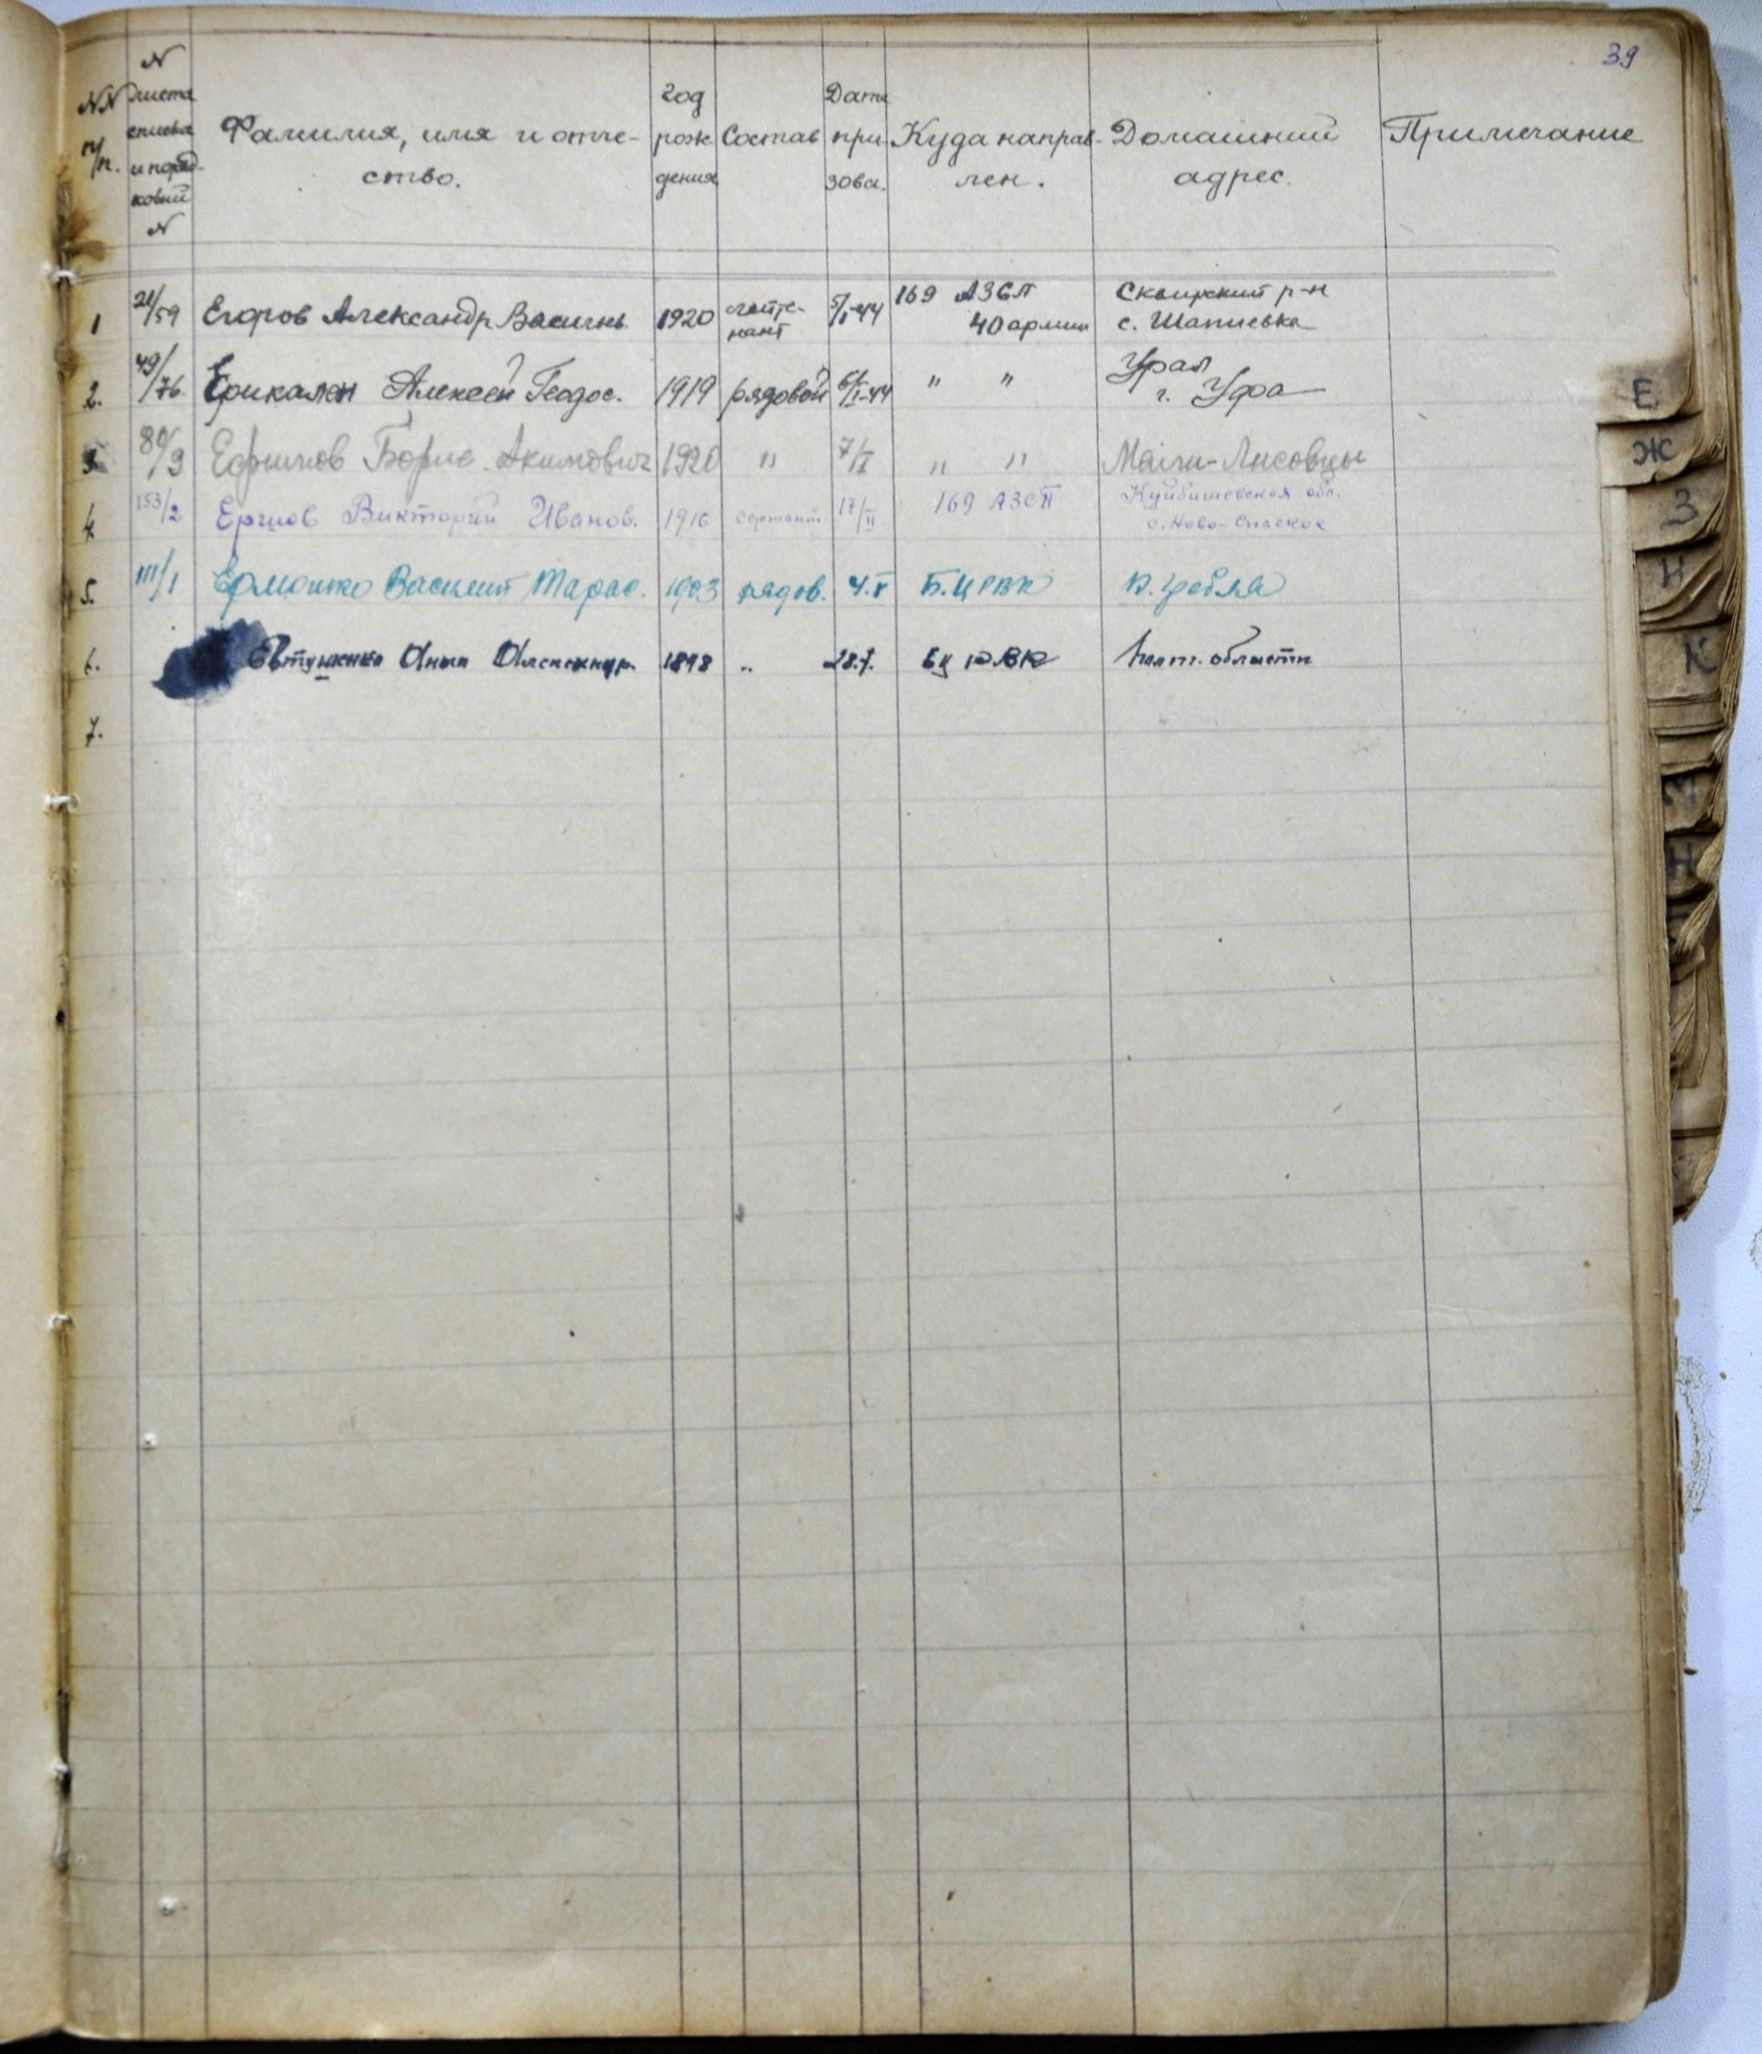 39
NN п/п. N листа списка и порядковый N Фамилия, имя и отчество. Год рождения Состав Дата призова. Куда направлен. Домашний адрес. Примечание
1 21/59 Егоров Александр 1920 лейтенант 5/I-44 169 АЗСП 40 армии Сквирский р-н с. Шапиевка
2. 49/76. Алексей Теодос. 1919 рядовой 6/I-44 " " Урал г. Уфа
3 80/9 Ефимов Борис Акимович 1920 " 7/I " " Лисовцы
4. 153/2 Виктор Иванов. 1916 сержант 17/II 169 АЗСП Куйбишевская обл. с. Ново-Спаское
5. 111/1 Василий Тарас. 1903 рядов. 4.V Б.Ц РВК
6. Евтушенко Александр. 1898 " 28.7. БЦ РВК области
7.
Е
Ж
З
И
К
М
Н